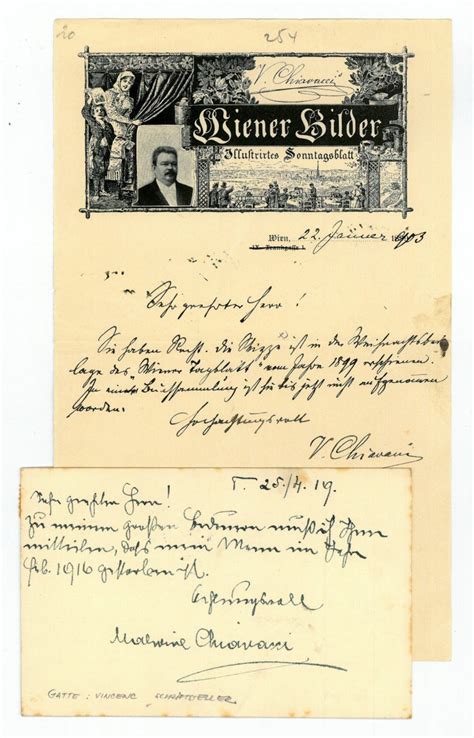 20
254
V. Chiavacci
Wiener Bilder
Illustrirtes Sonntagsblatt
Wien, 22. Jänner 1903
IX. Frankgasse 1.
Sehr geehrter Herr!
Sie haben Recht. die Skizze ist in der Weihnachtsbei-
lage des "Wiener Tagblatt" vom Jahre 1899 erschienen.
In einer Buchsammlung ist sie bis jetzt nicht aufgenommen
worden.
Hochachtungsvoll
V. Chiavacci
25/4. 19.
Sehr geehrter Herr!
Zu meinem großen Bedauern muß ich Ihnen
mitteilen, daß mein Mann im
Feb. 1916 gestorben ist.
Achtungsvoll
Malwine Chiavacci
GATTE: VINCENC SCHRIFTSTELLER